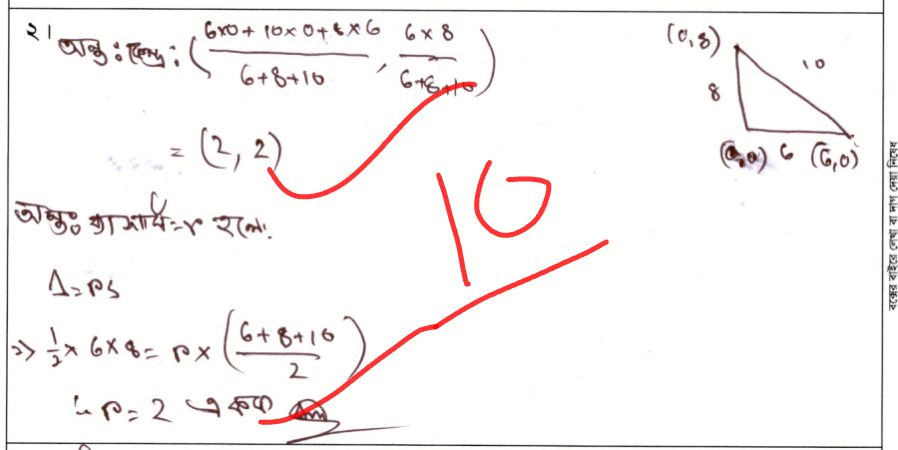 ২।
অন্তঃকেন্দ্র : ( (6×0 + 10×0 + 8×6)/(6+8+10) , (6×8)/(6+8+10) )
= (2, 2)
অন্তঃ ব্যাসার্ধ = r হলে,
Δ = rs
=> 1/2 × 6×8 = r × ( (6+8+10)/2 )
∴ r = 2 একক
10
(0,8)
10
8
(0,0) 6 (6,0)
বক্সের বাইরে লেখা বা দাগ দেয়া নিষেধ